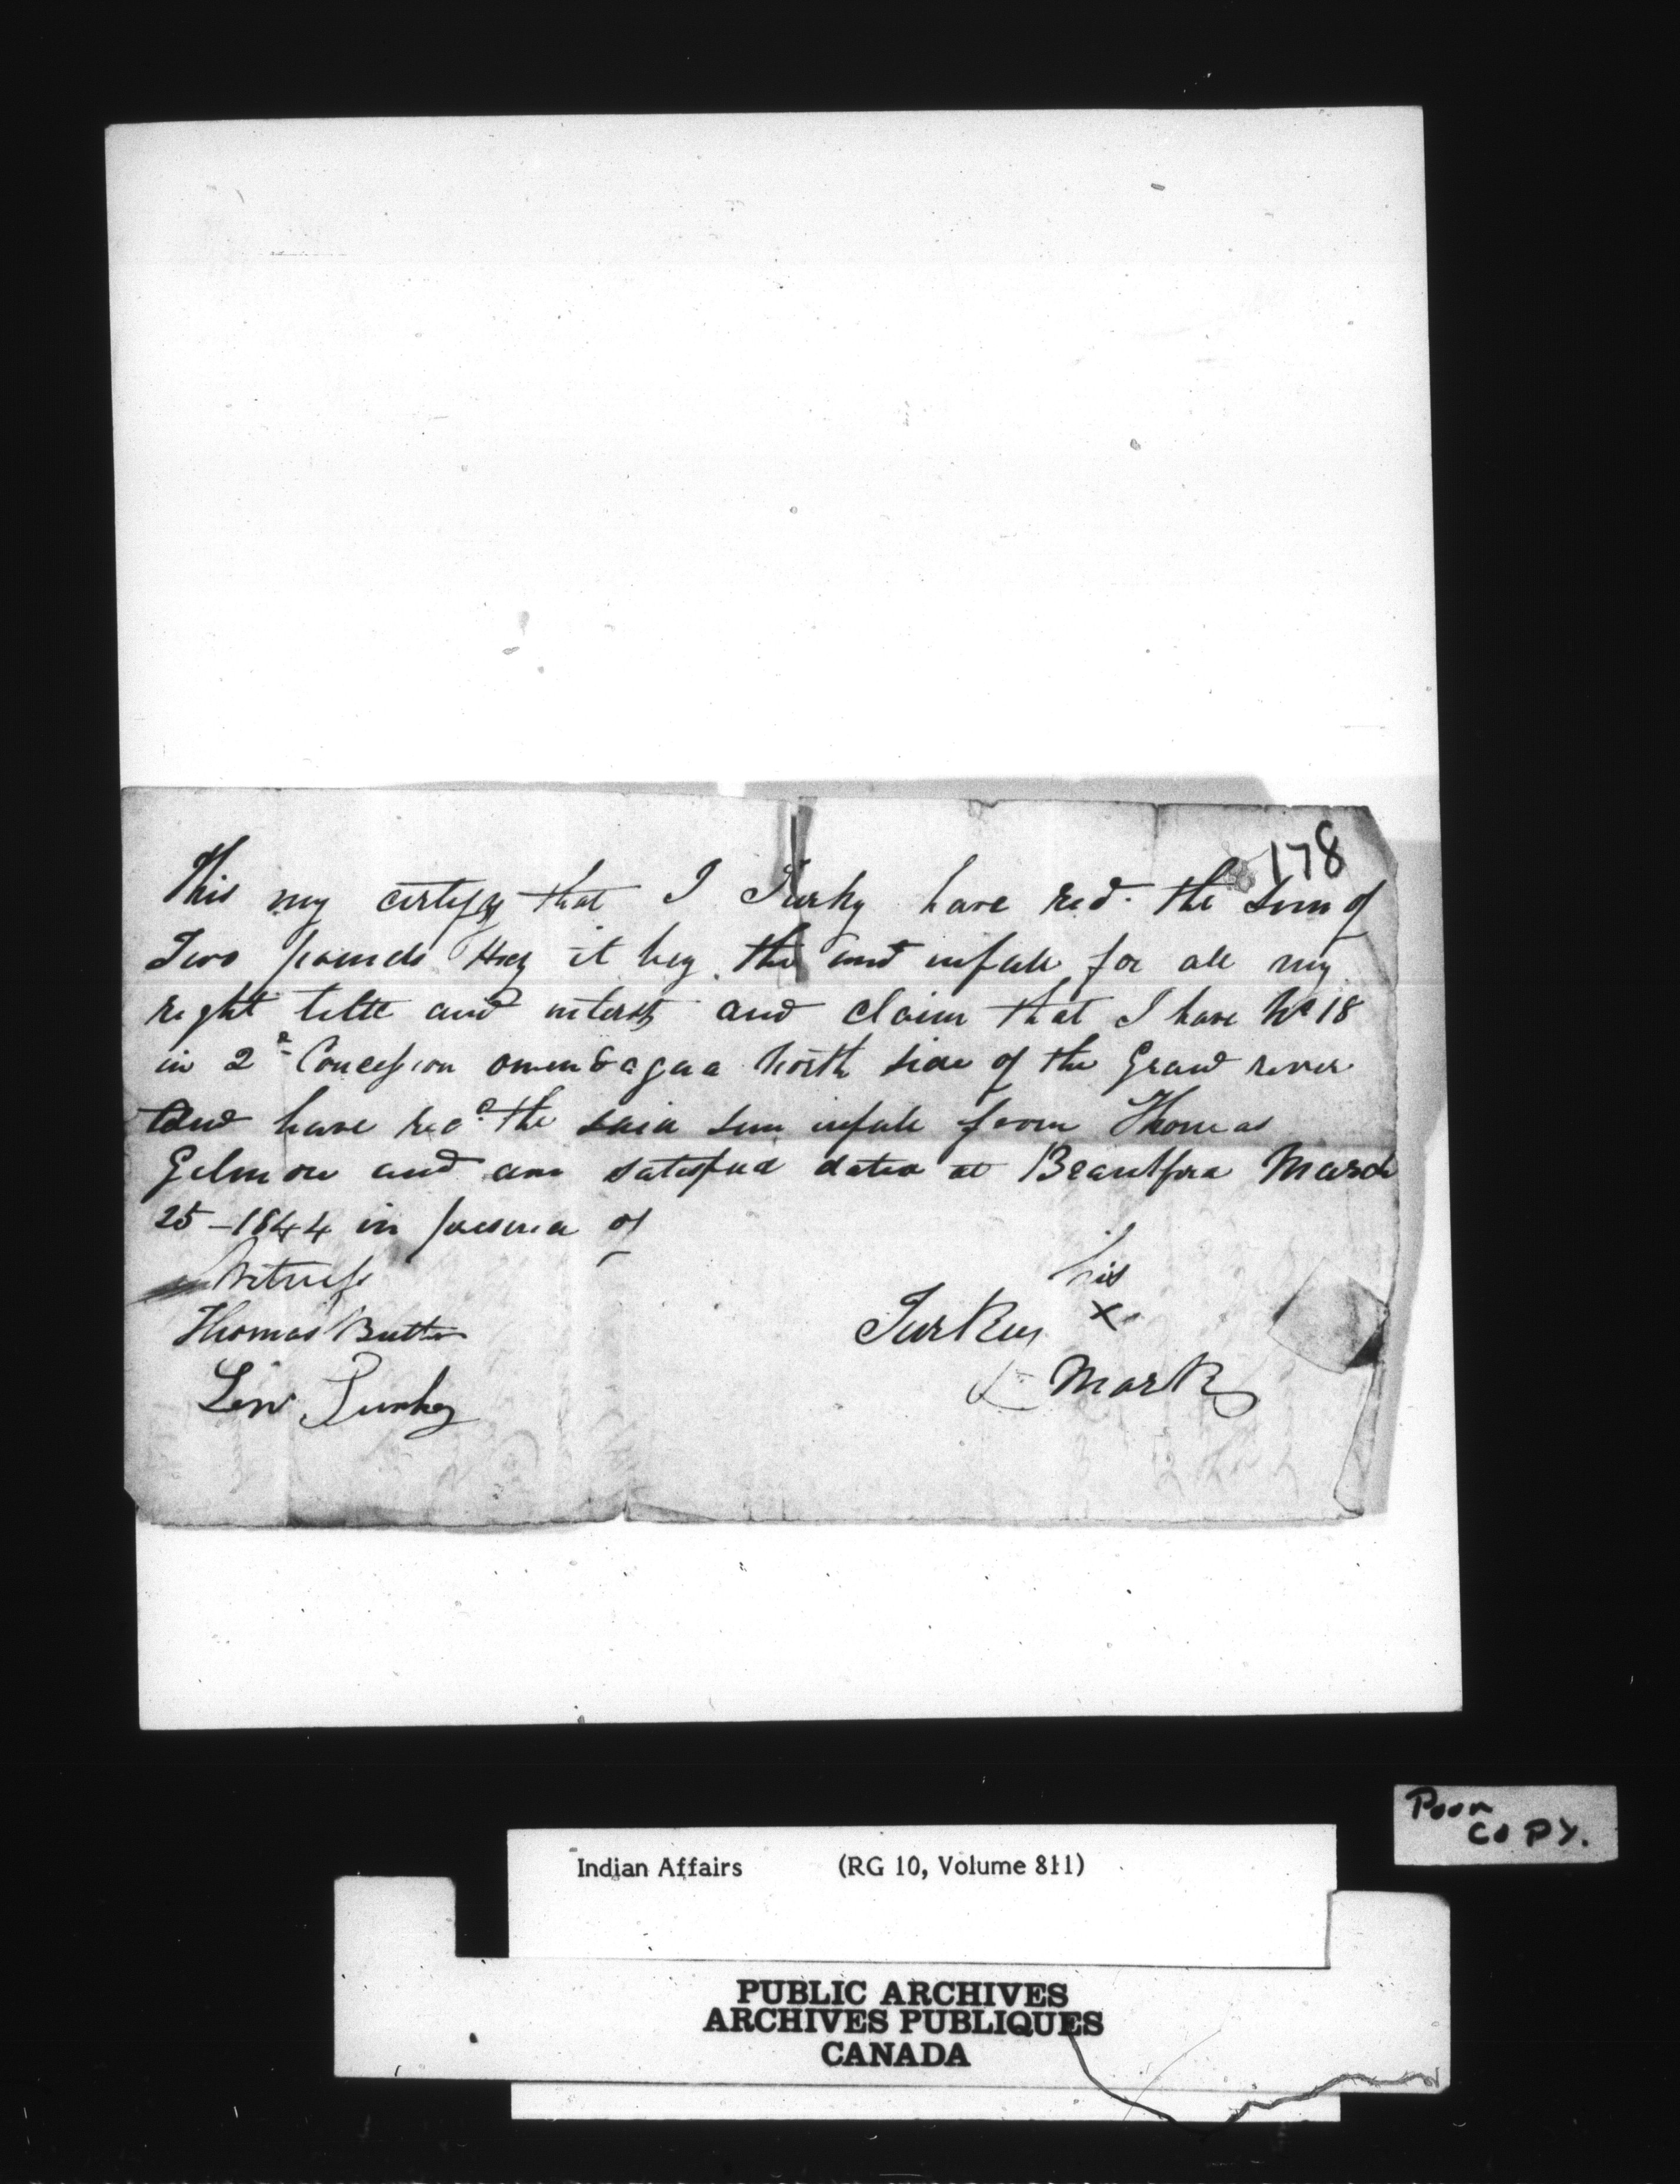 178
This my certify that I Turky have recd. the sum of
Two pounds it beg the and infull for all my
right title and interst and claim that I have No 18
in 2d Concession onondagaa North side of the Grand river
and have recd the said sum infull from Thomas
Gilmore and am satesfied dated at Brantford March
25-1844 in presence of
Witness
his
Thomas Butler
Turkey x
Mark
Poor
COPY.
Indian Affairs (RG 10, Volume 811)
PUBLIC ARCHIVES
ARCHIVES PUBLIQUES
CANADA